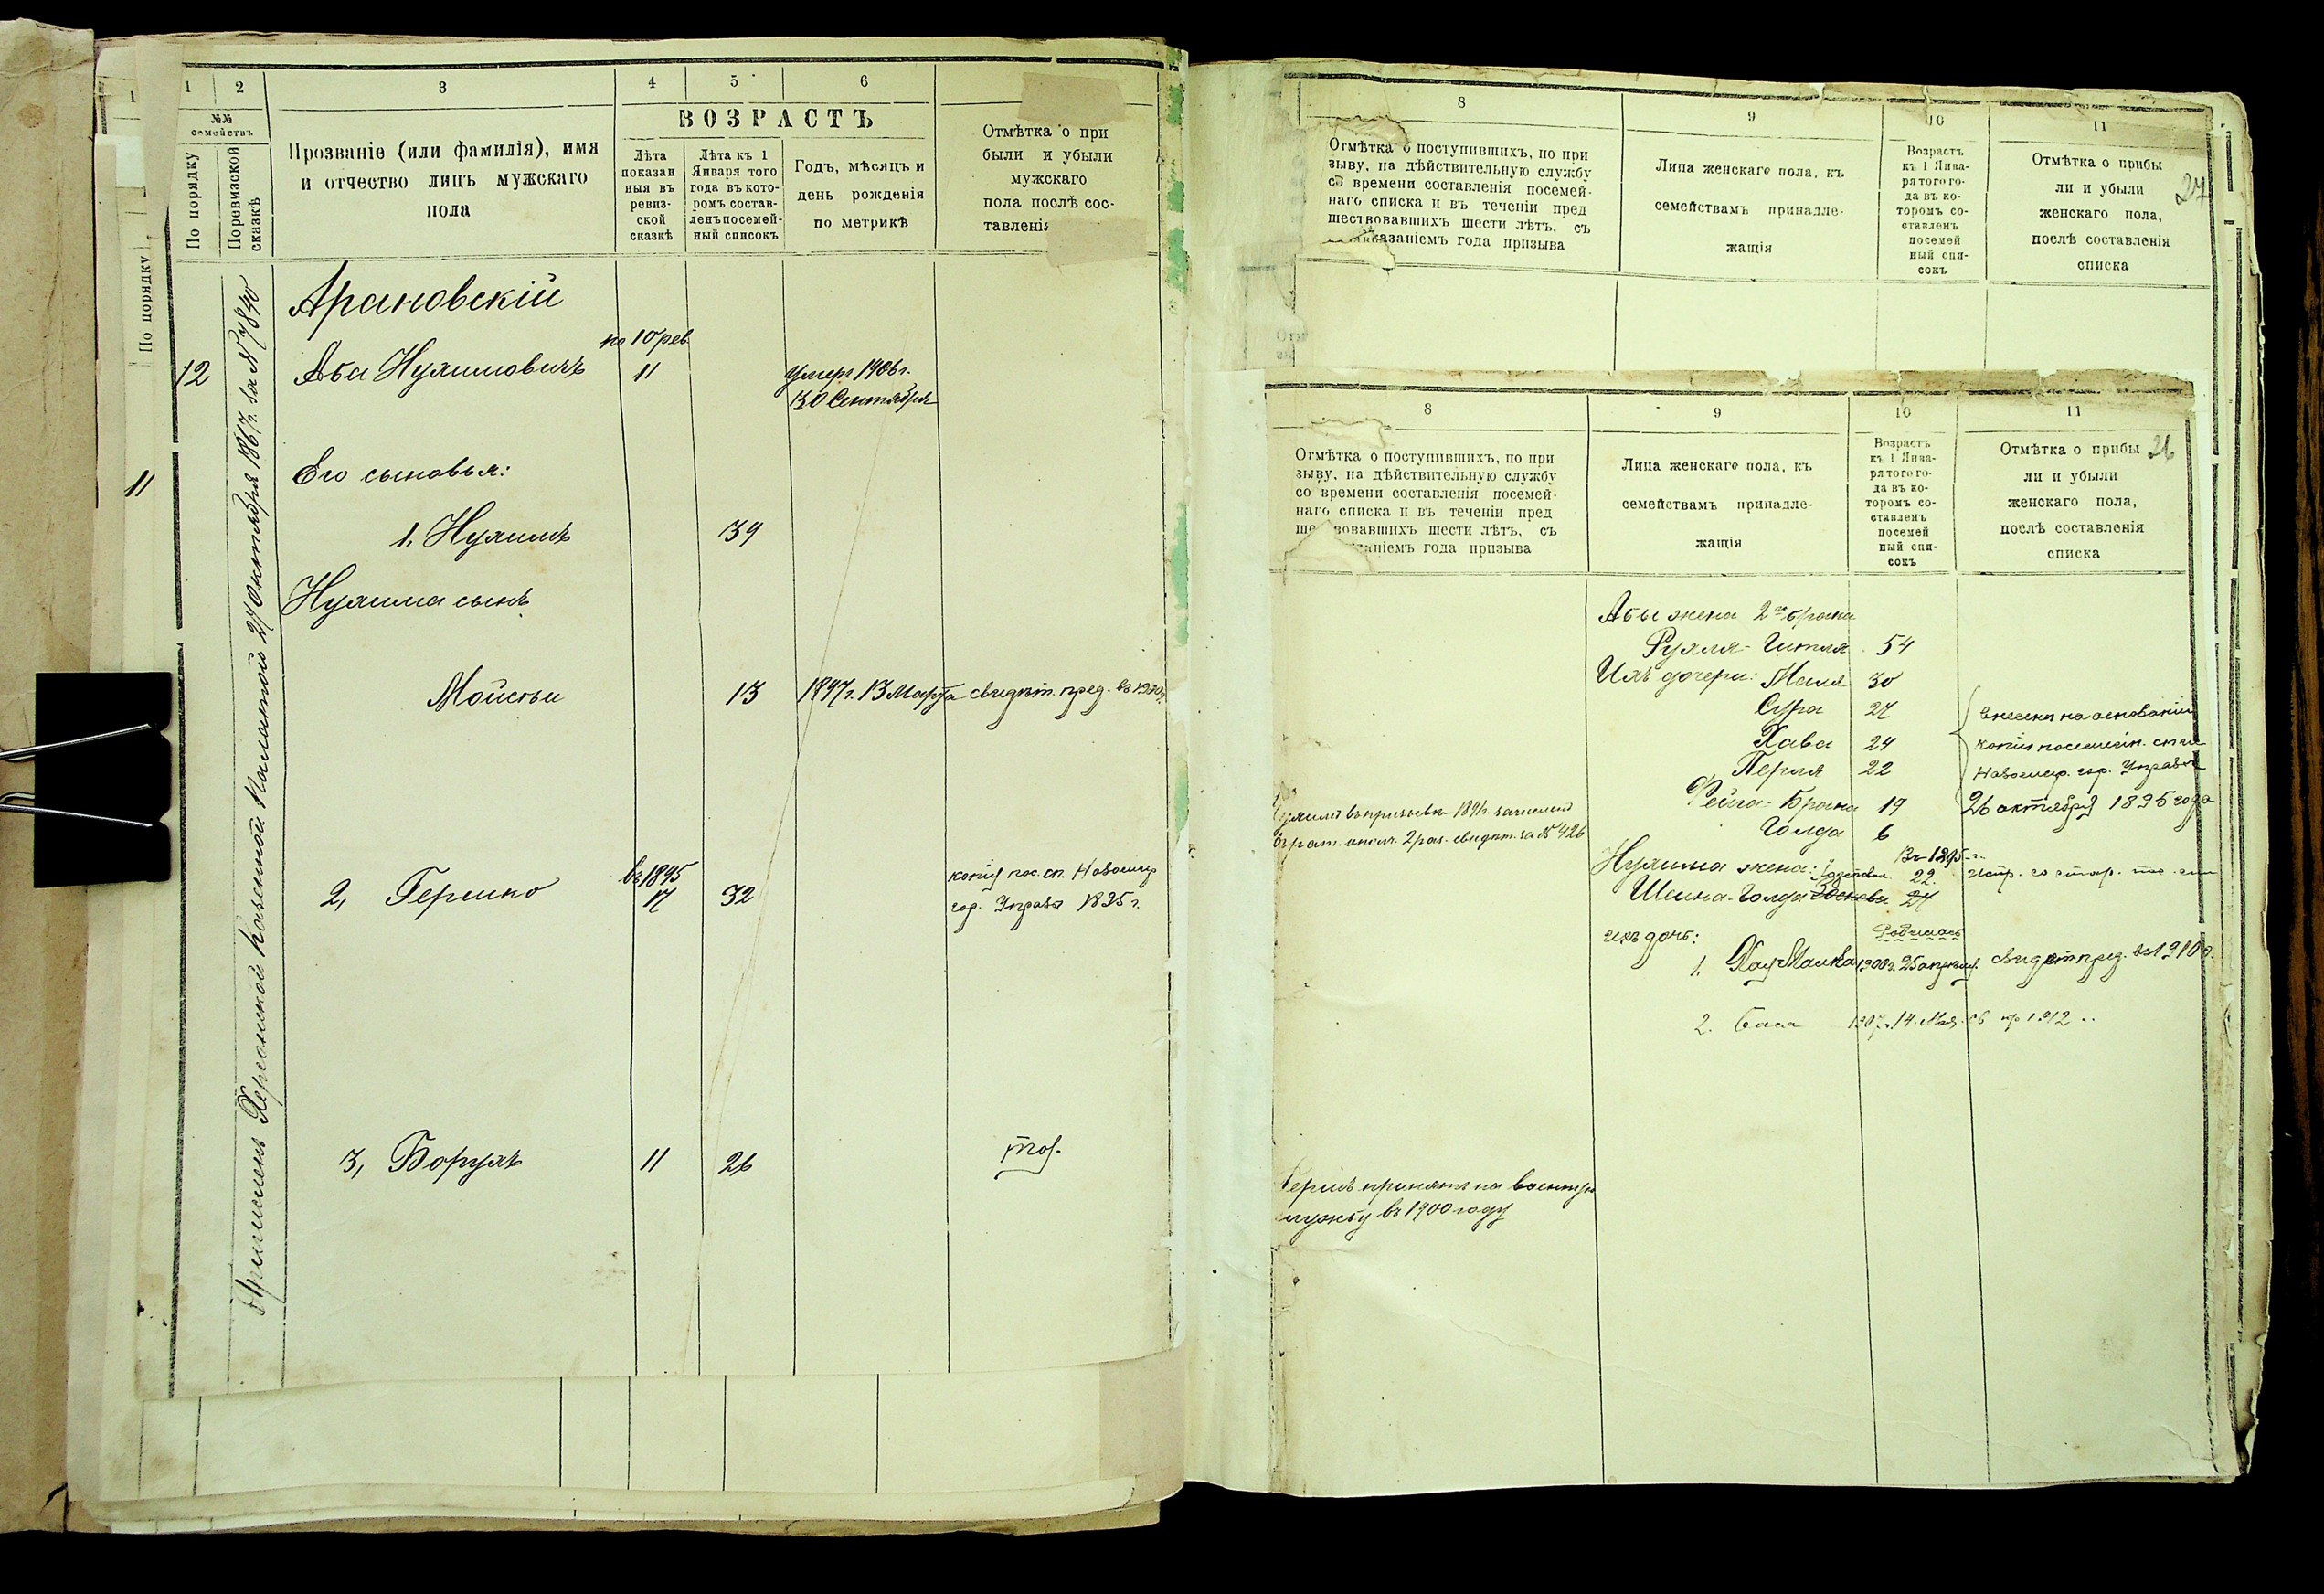 1 2 3 4 5 6
№№ семействъ
По порядку
По ревизской сказкѣ
Прозваніе (или фамилія), имя
и отчество лицъ мужскаго
пола
ВОЗРАСТЪ
Лѣта
показан
ныя въ
ревиз-
ской
сказкѣ
Лѣта къ 1
Января того
года въ кото-
ромъ состав-
ленъ посемей-
ный списокъ
Годъ, мѣсяцъ и
день рожденія
по метрикѣ
Отмѣтка о при
были и убыли
мужскаго
пола послѣ сос-
тавленія
1
По порядку
11
Причисленъ Херсонской Казенной Палатой 27 Октября 1867 г. за № 7840
Арановскій
по 10 рев.
12 Аба Нухимовичъ 11 умеръ 1906 г.
30 Сентября
Его сыновья:
1, Нухимъ 39
Нухима сынъ
Мойсей 13 1897 г. 13 Марта свидѣт. пред. въ 1910 г.
въ 1895
2, Гершко 17 32
копія пос. сп. Новомир
гор. Управы 1895 г.
3, Борухъ 11 26 тоже
8 9 10 11
Отмѣтка о поступившихъ, по при
зыву, на дѣйствительную службу
со времени составленія посемей-
наго списка и въ теченіи пред
шествовавшихъ шести лѣтъ, съ
указаніемъ года призыва
Лица женскаго пола, къ
семействамъ принадле-
жащія
Возрастъ
къ 1 Янва-
ря того го-
да въ ко-
торомъ со-
ставленъ
посемей
ный спи-
сокъ
Отмѣтка о прибы
ли и убыли
женскаго пола,
послѣ составленія
списка
27
8 9 10 11
Отмѣтка о поступившихъ, по при
зыву, на дѣйствительную службу
со времени составленія посемей-
наго списка и въ теченіи пред
ше вовавшихъ шести лѣтъ, съ
заніемъ года призыва
Лица женскаго пола, къ
семействамъ принадле-
жащія
Возрастъ
къ 1 Янва-
ря того го-
да въ ко-
торомъ со-
ставленъ
посемей
ный спи-
сокъ
Отмѣтка о прибы
ли и убыли
женскаго пола,
послѣ составленія
списка
26
Абы жена 2го брака
Рухля-Гитля 54
Ихъ дочери: Маля 30
Сура 27 внесены на основаніи
Хава 24 копіи посемейн. списк
Перля 22 Новомир. гор. Управы
Фейга-Брана 19 26 октября 1895 года
Голда 6
Нухимъ въ призывъ 189 г. зачисленъ
въ рат. ополч. 2 раз. свидѣт. за № 426
Въ 1895 г.
Нухима жена: 22
Шейна-Голда 27
ихъ дочь: Родилась
1, Хая-Малка 1900 г. 25 апрѣля свидѣт. пред. въ 1910 г.
2. Бася 1907 г. 14 Мая св. пр 1912
Гершъ принятъ на военную
службу въ 1900 году